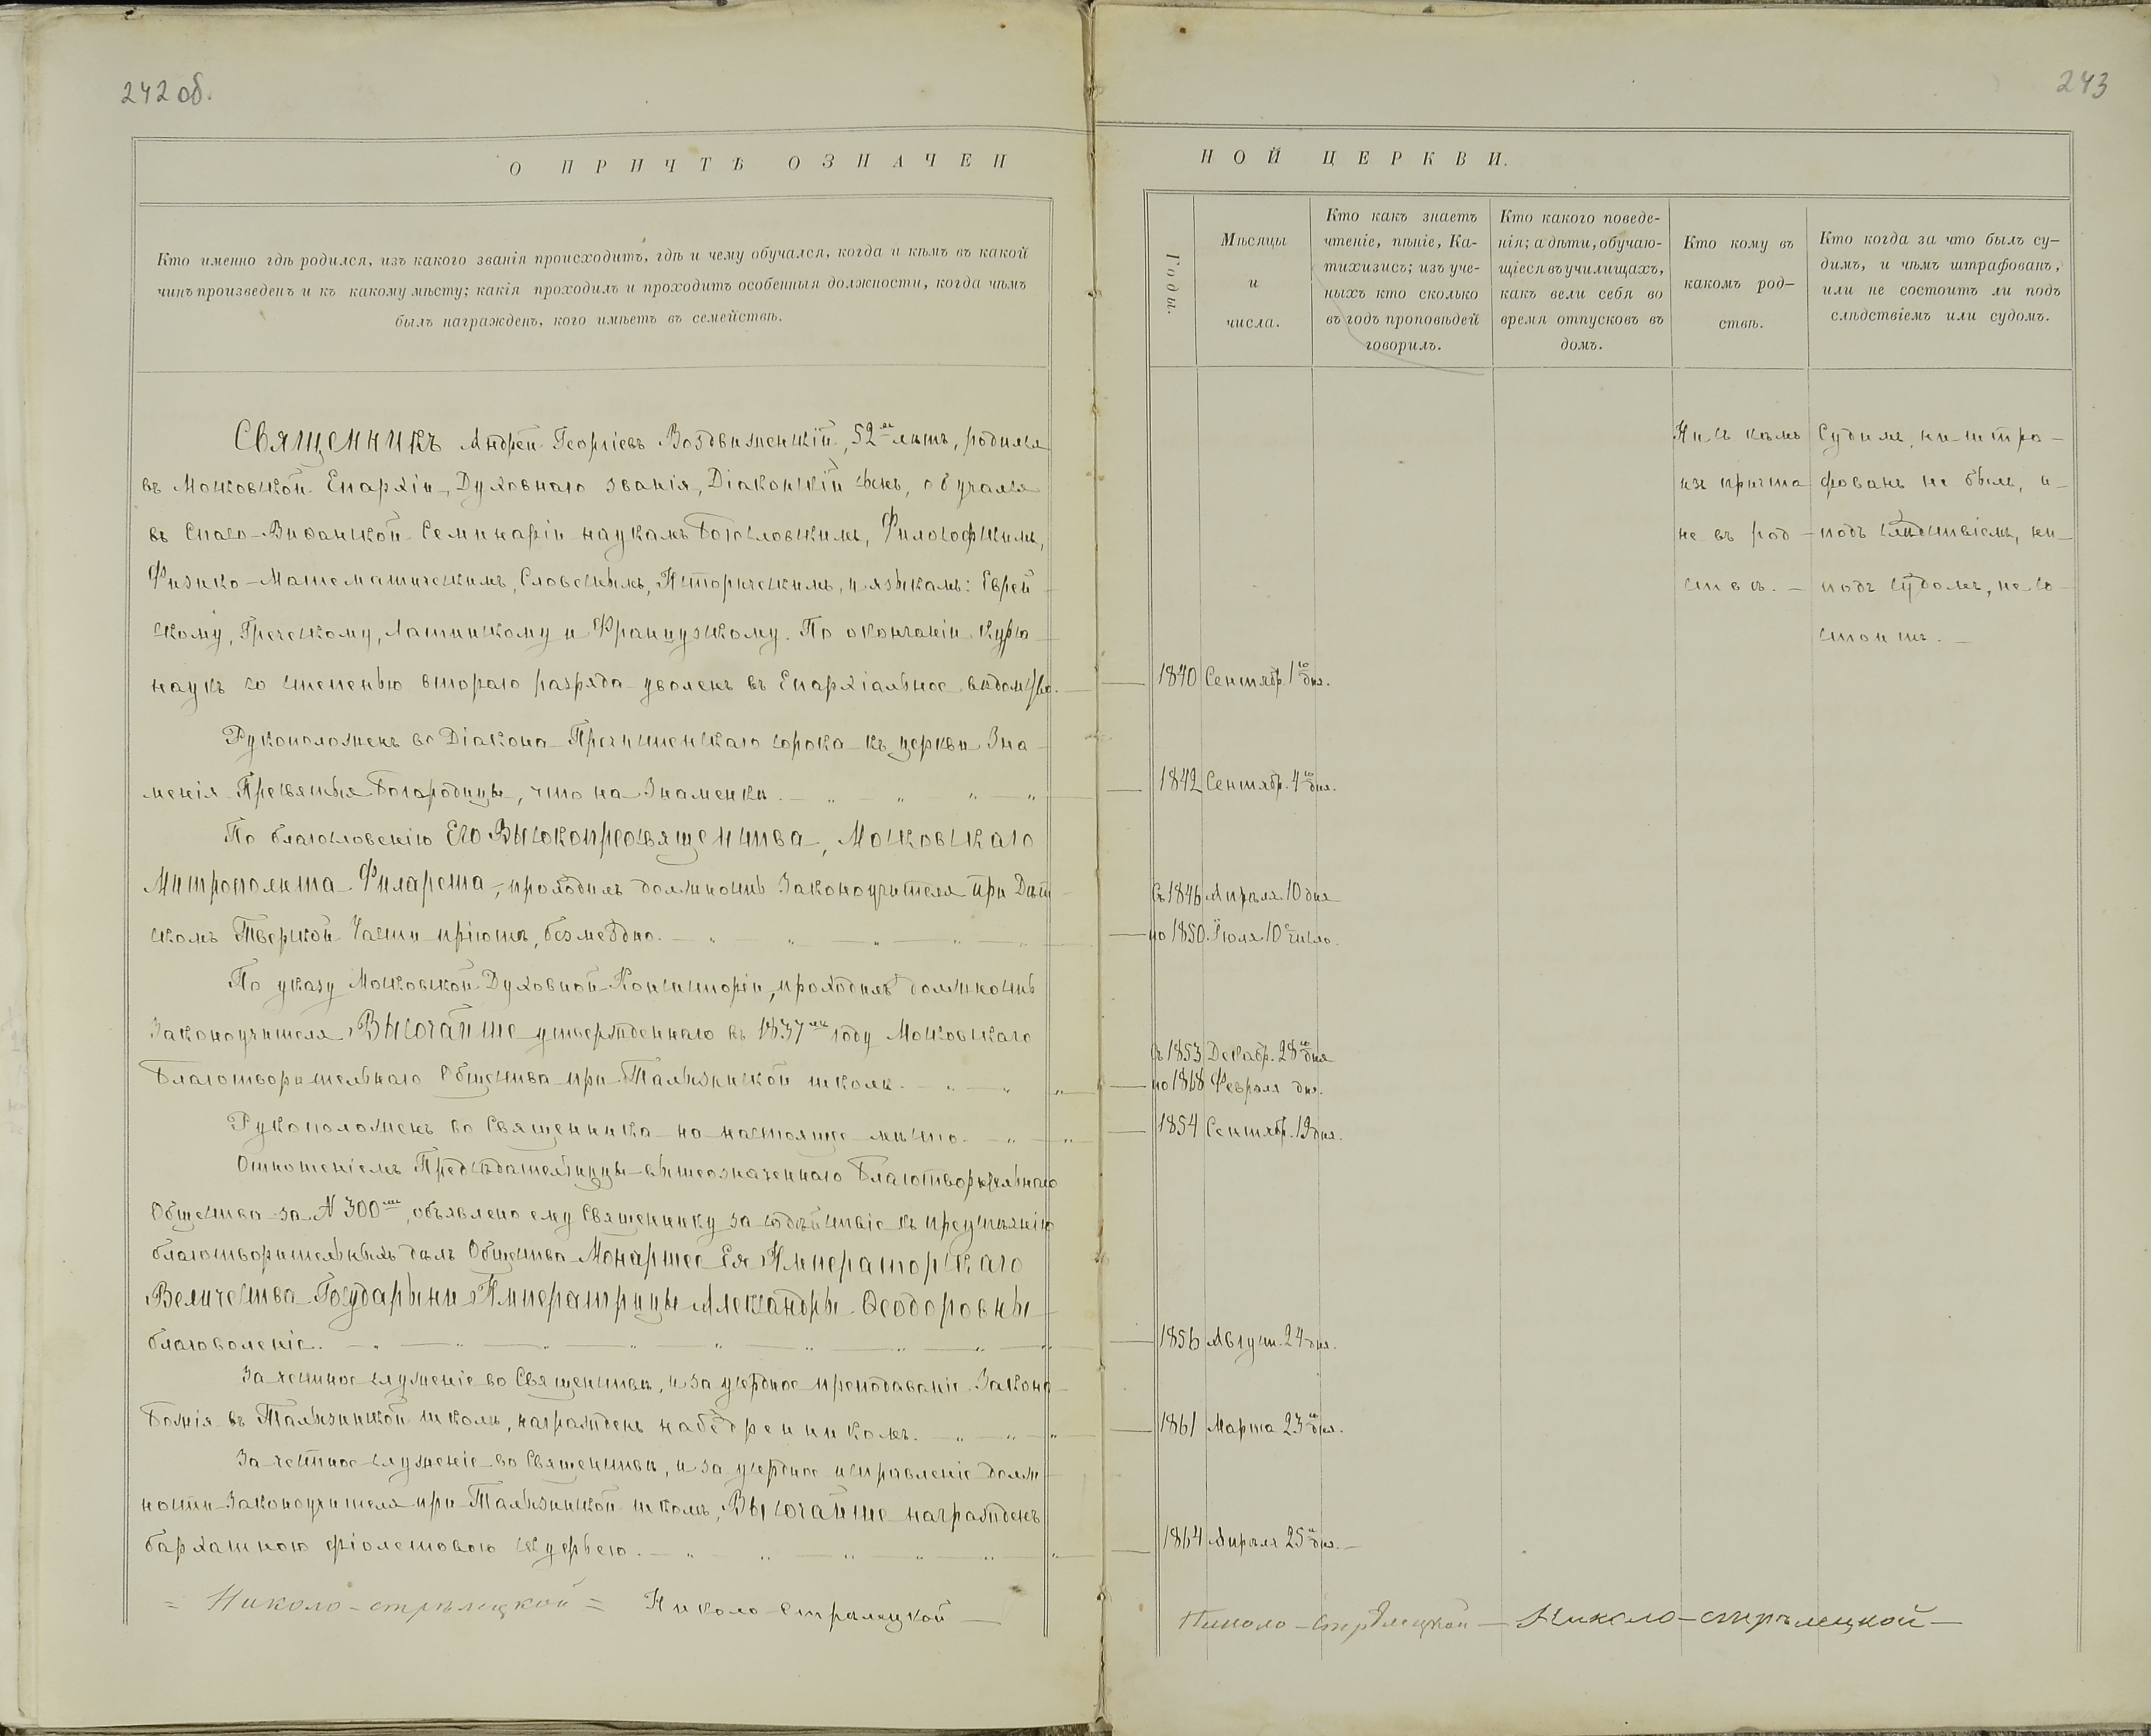 242 об.
О ПРИЧТѢ ОЗНАЧЕН
Кто именно гдѣ родился, изъ какого званія происходитъ, гдѣ и чему обучался, когда и кѣмъ въ какой
чинъ произведенъ и къ какому мѣсту; какія проходилъ и проходитъ особенныя должности, когда чѣмъ
былъ награжденъ, кого имѣетъ въ семействѣ.
Священникъ Андрей Георгіевъ Воздвиженскій, 52 лѣтъ, родился
въ Московской Епархіи, Духовнаго званія, Діаконскій сынъ, обучался
въ Спасо-Виѳанской Семинаріи наукамъ Богословскимъ, Философскимъ,
Физико-Математическимъ, Словеснымъ, Историческимъ, и языкамъ: Еврей
скому, Греческому, Латинскому и Французскому. По окончаніи курса
наукъ со степенью втораго разряда уволенъ въ Епархіальное вѣдомство.
Рукоположенъ во Діакона Пречистенскаго сорока къ церкви Зна
менія Пресвятыя Богородицы, что на Знаменкѣ.
По благословенію Его Высокопреосвященства, Московскаго
Митрополита Филарета, проходилъ должность Законоучителя при Дѣт
скомъ Тверской Части пріютѣ, безмездно.
По указу Московской Духовной Консисторіи, проходилъ должность
Законоучителя Высочайше утвержденнаго въ 1837мъ году Московскаго
Благотворительнаго Общества при Талызинской школѣ.
Рукоположенъ во Священника на настоящее мѣсто.
Отношеніемъ Предсѣдательницы вышеозначеннаго Благотворительнаго
Общества за № 300мъ, объявлено ему Священнику за содѣйствіе къ преуспѣянію
благотворительныхъ дѣлъ Общества Монаршее Ея Императорскаго
Величества Государыни Императрицы Александры Ѳеодоровны
благоволеніе.
За честное служеніе во Священствѣ, и за усердное преподаваніе Закона
Божія въ Талызинской школѣ, награжденъ набедренникомъ.
За честное служеніе во Священствѣ, и за усердное исправленіе долж
ности Законоучителя при Талызинской школѣ, Высочайше награжденъ
бархатною фіолетовою скуфьею.
= Николо-стрѣлецкой = Николо-Стрѣлецкой —
243
НОЙ ЦЕРКВИ.
Годы.
Мѣсяцы
и
числа.
Кто какъ знаетъ
чтеніе, пѣніе, Ка-
тихизисъ; изъ уче-
ныхъ кто сколько
въ годъ проповѣдей
говорилъ.
Кто какого поведе-
нія; а дѣти, обучаю-
щіеся въ училищахъ,
какъ вели себя во
время отпусковъ въ
домъ.
Кто кому въ
какомъ род-
ствѣ.
Кто когда за что былъ су-
димъ, и чѣмъ штрафованъ,
или не состоитъ ли подъ
слѣдствіемъ или судомъ.
Ни съ кѣмъ
изъ причта
не въ род-
ствѣ. —
Судимъ, ни штра-
фованъ не былъ, и
подъ слѣдствіемъ, ни
подъ судомъ, не со-
стоитъ. —
1840 Сентябр. 1го дня.
1842 Сентябр. 4го дня.
Съ 1846 Апрѣля 10 дня
по 1850 Іюля 10е число.
Съ 1853 Декабр. 28го дня
по 1868 Февраля дня.
1854 Сентябр. 19 дня.
1856 Август. 24 дня.
1861 Марта 23го дня.
1864 Апрѣля 25го дня. —
Николо-Стрѣлецкой — Николо-стрѣлецкой —